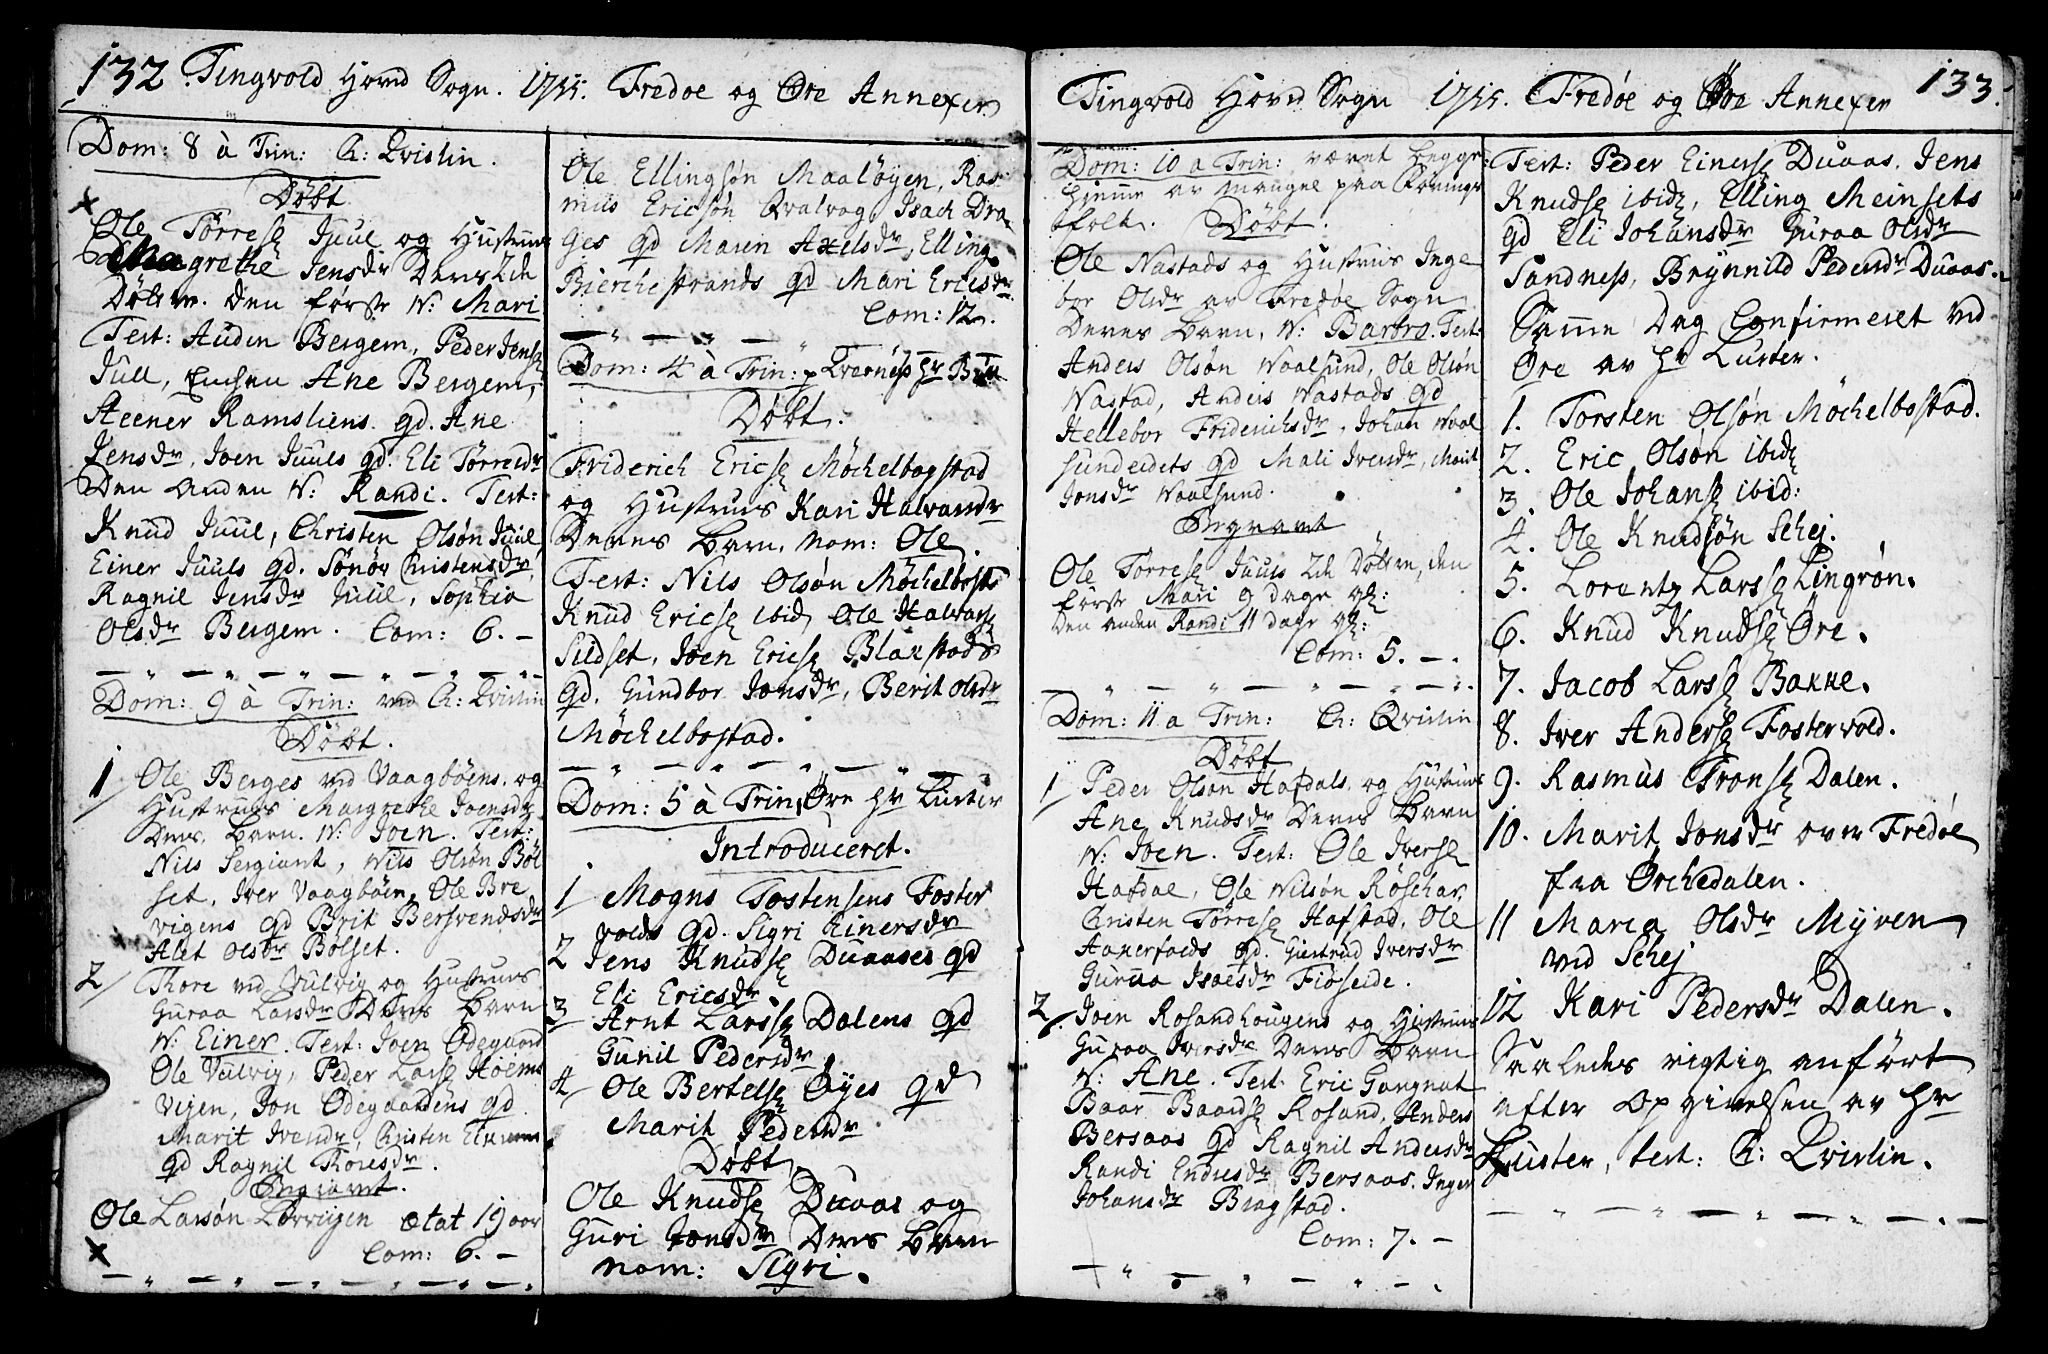 132 Tingvold Hovd Sogn. 1755. Fredøe og Øre Annexer
Dom: 8 à Trin: C: Qvislin.
Døbt
Ole Tørresę Juul og Hustrues
Magrethe Jensdr Deres 2de
Døttre. den første N: Mari
Test: Auden Bergem, Peder Jensę
Jull, Enchen Ane Bergem,
Steener Ramsliens qd. Ane
Jensdr, Joen Juuls qd. Eli Tørresdr
Den anden N: Randi. Test:
Knud Juul, Christen Olsøn Juul
Einer Juuls qd. Sønøv Christensdr
Ragnil Jensdr Juul, Sophia
Olsdr Bergem. Com: 6. –
Dom: 9 à Trin: ved C: Qvislin
Døbt.
1 Ole Berges ved Vaagbøens og
Hustrues Margrethe Joensdr
Deres Barn. N: Joen. Test:
Nils Sergiant, Nils Olsøn Bøl
set, Iver Vaagbøen, Ole Bre
vigens qd Brit Bersvendsdr
Alet Olsdr Bølset.
2 Thore ved Vulvig og Hustrues
Guraa Larsdr Deres Barn
N: Einer. Test: Joen Ødegaard
Ole Vulvig, Peder Larsę Høems
Vejen, Jon Ødegaardens qd
Marit Iversdr, Cristen
qd Ragnil Thoresdr.
Begravet.
Ole Larsøn Lørvigen etat 19 aar
Com: 6. –
Ole Ellingsøn Maaløyen, Ras
mus Ericsøn Qvalvog, Isach Dra
ges qd Maren Axelsdr, Elling
Bierchestrands qd Mari Ericsdr
Com: 12.
Dom: 4 à Trin: p Qvernęs hr
Døbt.
Friderich Ericsę Möchelbogstad
og Hustrues Kari Halvarsdr
Deres Barn, nom: Ole.
Test: Nils Olsøn Möchelbost
Knud Ericsę ibid, Ole Halvarsę
Sildset, Joen Ericsę Blaxstads
qd. Gundbor Jonsdr, Berit Olsdr
Möchelbostad.
Dom: 5 à Trin: Øre hr Luster
Introduceret.
1 Mogns Tostensens Foster
volds qd. Sigri Einersdr
2 Jens Knudsę Duaases qd
Eli Ericsdr.
3 Arnt Larsę Dalens qd
Gunil Pedersdr
4 Ole Bertelsę Øyes qd
Marit Pedersdr.
Døbt
Ole Knudsę Duaas og
Guri Jonsdr Deres Barn
nom: Sigri.
Tingvold Hovd Sogn 1755. Fredøe og Øre Annexer 133.
Dom: 10 a Trin: været begge
hiemme av mangel paa Rønings
folk. Døbt.
Ole Nastads og Hustrues Inge
bor Olsdr av Fredøe Sogn
Deres Barn, N: Bartro. Test:
Anders Olsøn Waalsund, Ole Olsøn
Nastad, Anders Nastads qd
Hellebor Friderichsdr, Johan Waal
sundeidets qd Mali Iversdr, Marit
Jonsdr Waalsund.
Begravet
Ole Tørresę Juuls 2de Døttre, den
første Mari 9 dage gl:
den anden Randi 11 dage gl:
Com: 5. –.
Dom: 11 a Trin: C: Qvislin
Døbt
1 Peder Olsøn Hafdals og Hustrues
Ane Knudsdr Deres Barn
N: Joen. Test: Ole Iversę
Hafdal, Ole Nilsøn Røschar,
Cristen Tørresę Hafstad, Ole
Aakerfalds qd. Giertrud Iversdr
Guraa Isacsdr Fiøseide.
2 Joen Rosandhougens og Hustrues
Guraa Iversdr Deres Barn
N: Ane. Test: Eric Gangnat
Baar Baardsę Rosand, Anders
Bersaas qd Ragnil Andersdr
Randi Endresdr Bersaas, Inger
Johansdr Bragstad.
Com: 7. –
Test: Peder Einersę Duaas. Jens
Knudsę ibid, Elling Meinsets
qd Eli Johansdr Guraa Olsdr
Sandnęs, Brynnild Pedersdr Duaas.
Samme Dag Confirmeret ved
Øre av hr Luster.
1. Torsten Olsøn Möchelbostad.
2. Eric Olsøn ibid
3. Ole Johansę ibid:
4. Ole Knudsøn Schej.
5. Lorentz Larsę Lingrøn.
6. Knud Knudsę Øre.
7. Jacob Larsę Bakke.
8. Iver Andersę Fostervold.
9. Rasmus Tronsę Dalen.
10. Marit Jonsdr over Fredøe
fra Orchedalen.
11 Maria Olsdr Myren
ved Schej
12 Kari Pedersdr Dalen.
Saaledes rigtig anført
efter Opgivelsen av hr
Luster, test: C: Qvislin.